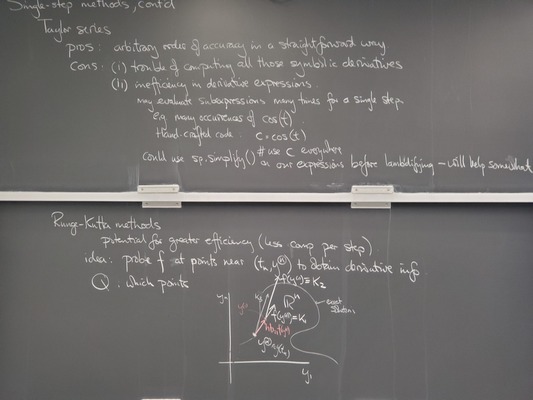 Single-step methods, cont'd
Taylor series
pros: arbitrary order of accuracy in a straightforward way
Cons: (i) trouble of computing all those symbolic derivatives
(ii) inefficiency in derivative expressions.
may evaluate subexpressions many times for a single step
e.g. many occurences of cos(t).
Hand-crafted code. c = cos(t)
# use c everywhere
could use sp.simplify() on our expressions before lambdifying - will help somewhat
Runge-Kutta methods
potential for greater efficiency (less comp per step).
idea: probe f at points near (tn, y(n)) to obtain derivative info
Q: which points
K2
ℝn
exact solution
= K1
y1